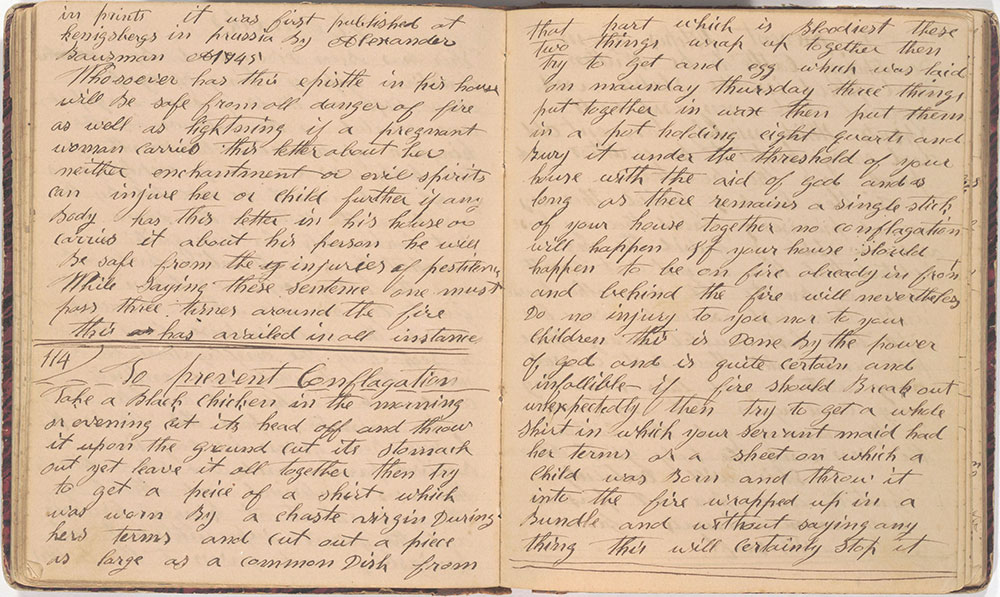 in prints it was first published at
kenigsbergs in prussia By Alexander
Bausman A1745
Whosoever has this epistle in his house
will Be safe from all danger of fire
as well as lightning if a pregnant
woman carries this letter about her
neither enchantment or evil spirits
can injure her or child further if any
Body has this letter in his house or
carries it about his person he will
Be safe from the injuries of pestilence
While saying these sentence one must
pass three times around the fire
this has availed in all instance
114
To prevent Conflagation
Take a Black Chicken in the morning
or evening cut its head off and throw
it upon the ground cut its stomach
out yet leave it all together then try
to get a peice of a shirt which
was worn By a chaste virgin During
hers terms and cut out a piece
as large as a common Dish from
that part which is Bloodiest these
two things wrap up together then
try to get and egg which was laid
on maunday thursday three things
put together in wax then put them
in a pot holding eight quarts and
Bury it under the threshold of your
house with the aid of god and as
long as there remains a single stick
of your house together no conflagation
will happen If your house should
happen to be on fire already in front
and behind the fire will nevertheless
Do no injury to you nor to your
Children this is Done By the power
of god and is quite certain and
infallible if fire should Break out
unexpectedly then try to get a whole
shirt in which your servant maid had
her terms or a sheet on which a
Child was Born and throw it
into the fire wrapped up in a
Bundle and without saying any
thing this will certainly stop it